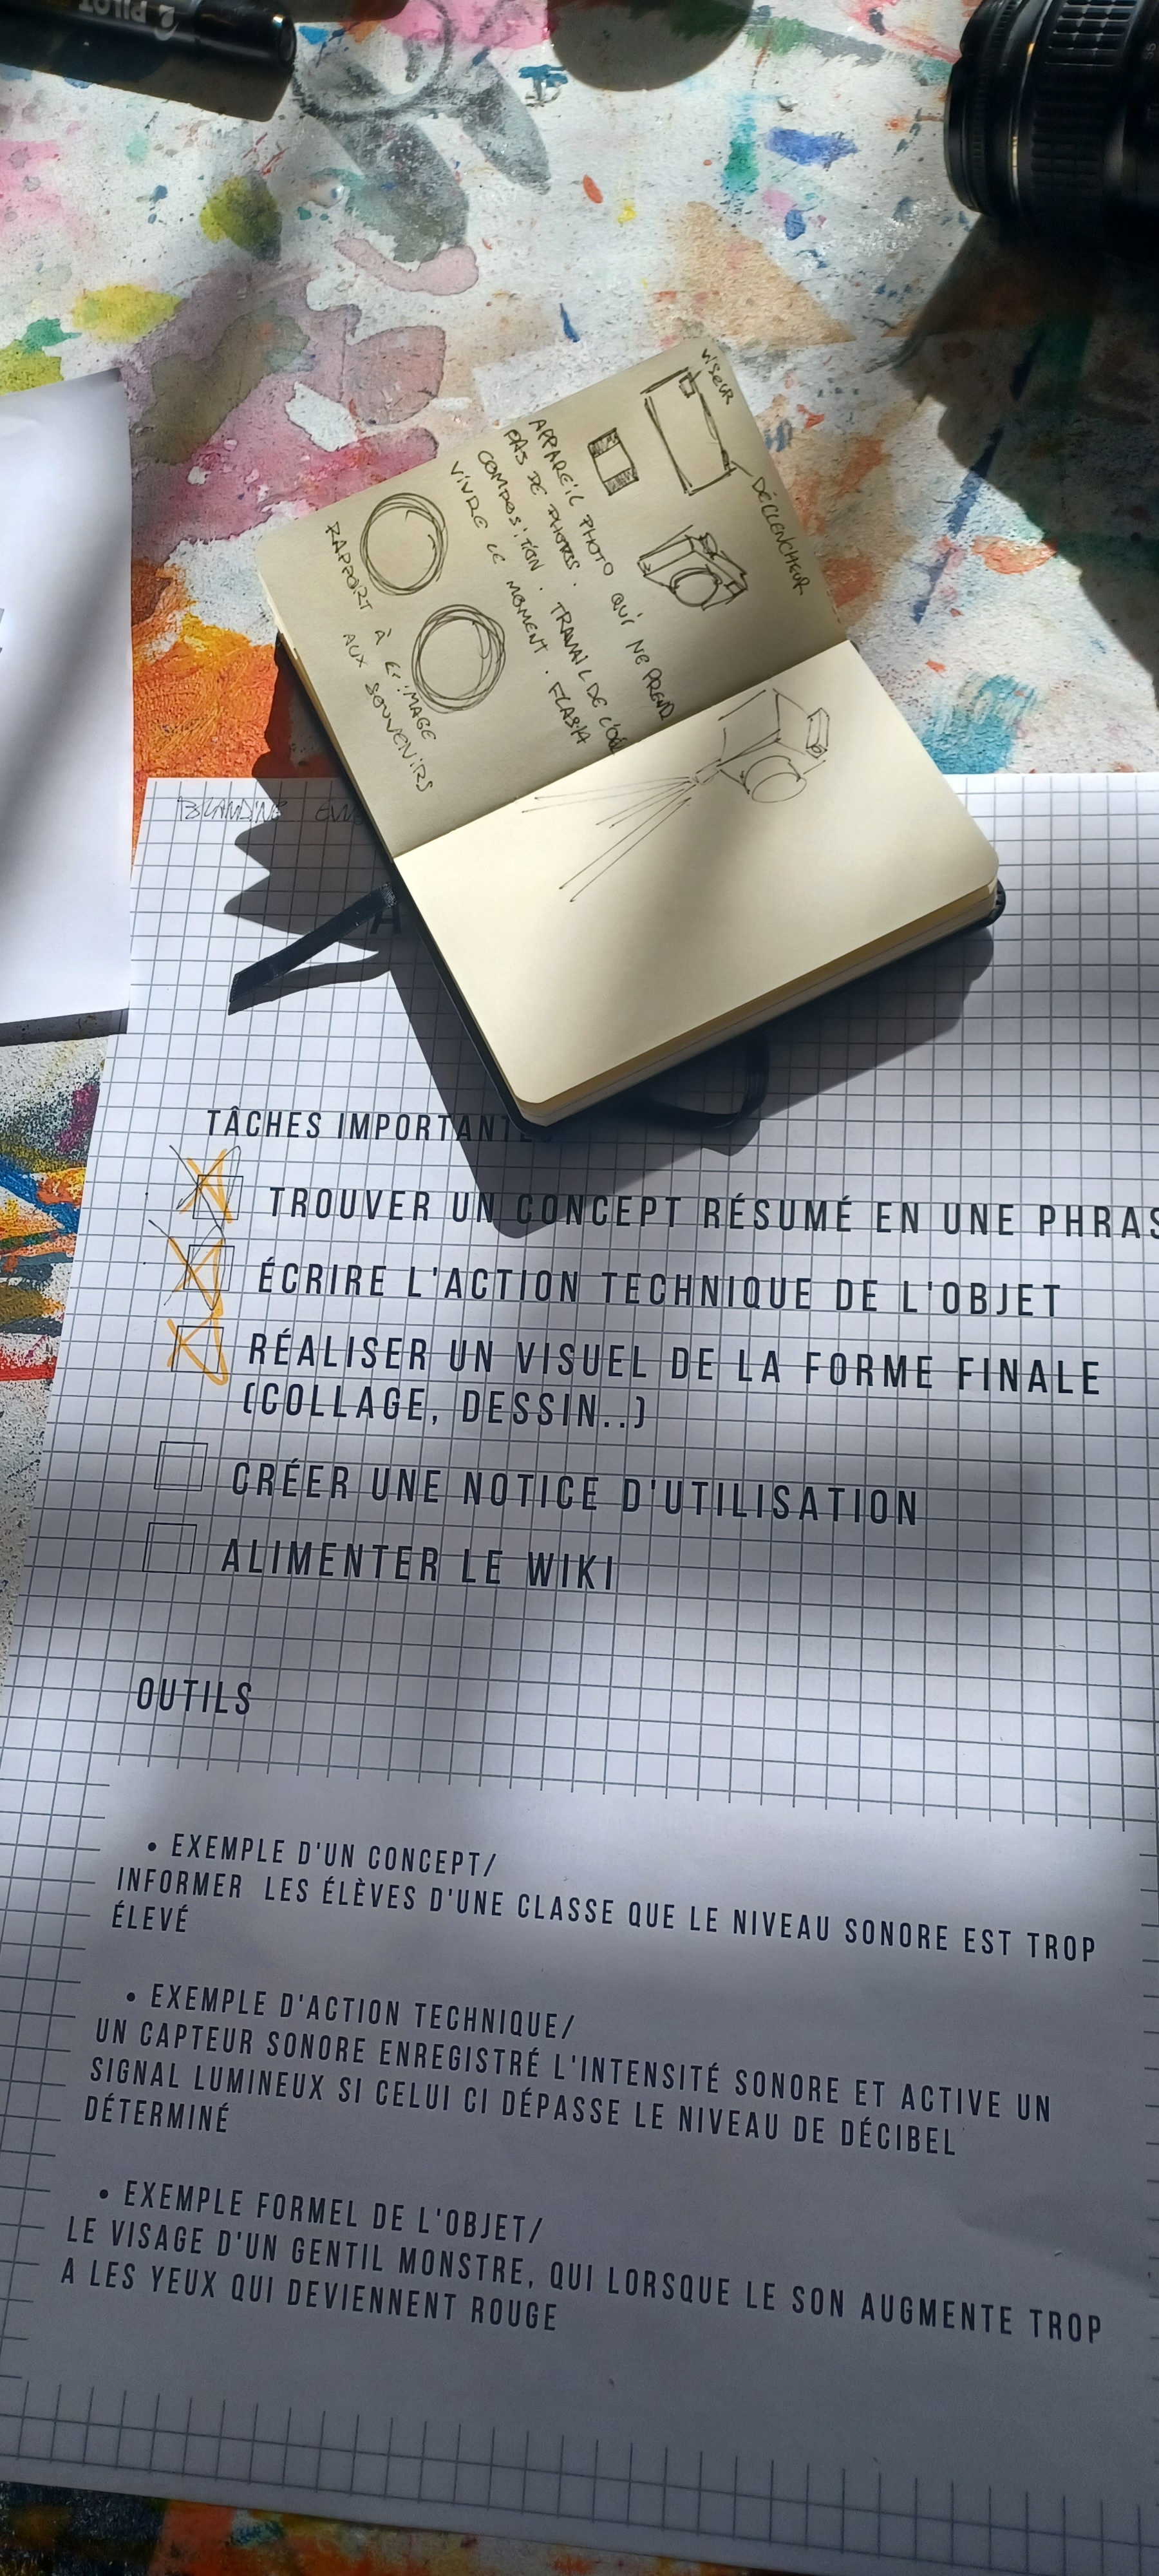 PILOT
VISEUR
DÉCLENCHEUR
APPAREIL PHOTO QUI NE PREND
PAS DE PHOTOS. TRAVAIL DE L'OEIL
COMPOSITION. FLASH
VIVRE LE MOMENT.
RAPPORT À L'IMAGE
AUX SOUVENIRS
BLANDINE
A
TÂCHES IMPORTANTES
TROUVER UN CONCEPT RÉSUMÉ EN UNE PHRAS
ÉCRIRE L'ACTION TECHNIQUE DE L'OBJET
RÉALISER UN VISUEL DE LA FORME FINALE
(COLLAGE, DESSIN..)
CRÉER UNE NOTICE D'UTILISATION
ALIMENTER LE WIKI
OUTILS
• EXEMPLE D'UN CONCEPT/
INFORMER LES ÉLÈVES D'UNE CLASSE QUE LE NIVEAU SONORE EST TROP
ÉLEVÉ
• EXEMPLE D'ACTION TECHNIQUE/
UN CAPTEUR SONORE ENREGISTRÉ L'INTENSITÉ SONORE ET ACTIVE UN
SIGNAL LUMINEUX SI CELUI CI DÉPASSE LE NIVEAU DE DÉCIBEL
DÉTERMINÉ
• EXEMPLE FORMEL DE L'OBJET/
LE VISAGE D'UN GENTIL MONSTRE, QUI LORSQUE LE SON AUGMENTE TROP
A LES YEUX QUI DEVIENNENT ROUGE